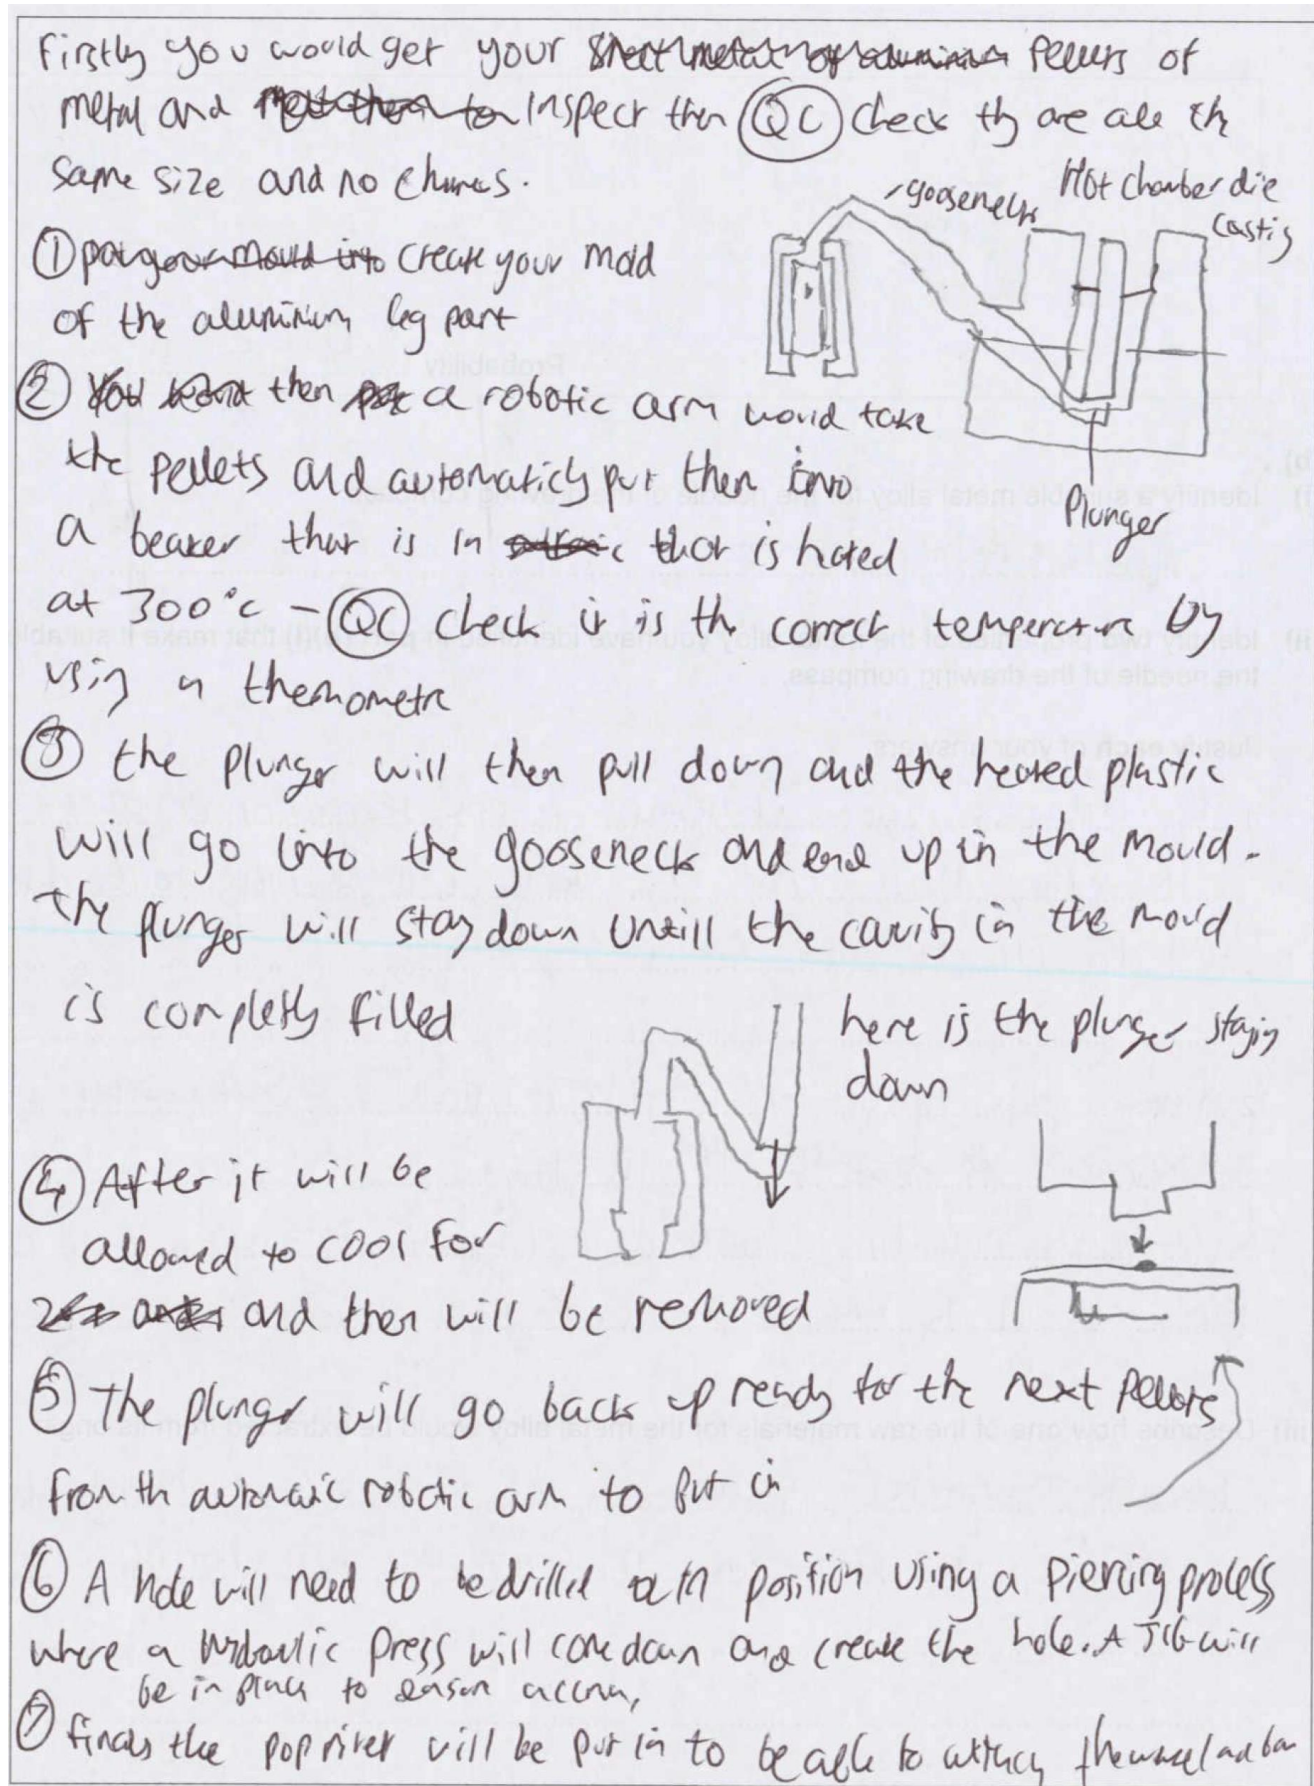 Firstly you would get your sheet metal of aluminium Pellets of
metal and melt them to Inspect then QC check thy are all th
same size and no chunks.
gooseneck
Hot chamber die
casting
① put your mould into create your mold
of the aluminium leg part
② then a robotic arm would take
the pellets and automaticly put then into
a beaker that is in that is hated
at 300°c - QC check it is th correct temperature by
using a thermometr
Plunger
③ the plunger will then pull down and the heated plastic
will go into the gooseneck and end up in the mould.
the plunger will stay down untill the cavity in the mould
is completly filled
here is the plunger staying
down
④ After it will be
allowed to cool for
and then will be removed
⑤ The plunger will go back up ready for the next pellets
from th automatic robotic arm to put in
⑥ A hole will need to be drilled in position using a piercing process
where a hydraulic press will come down and create the hole. A JIG will
be in place to
⑦ the pop rivet will be put in to be able to